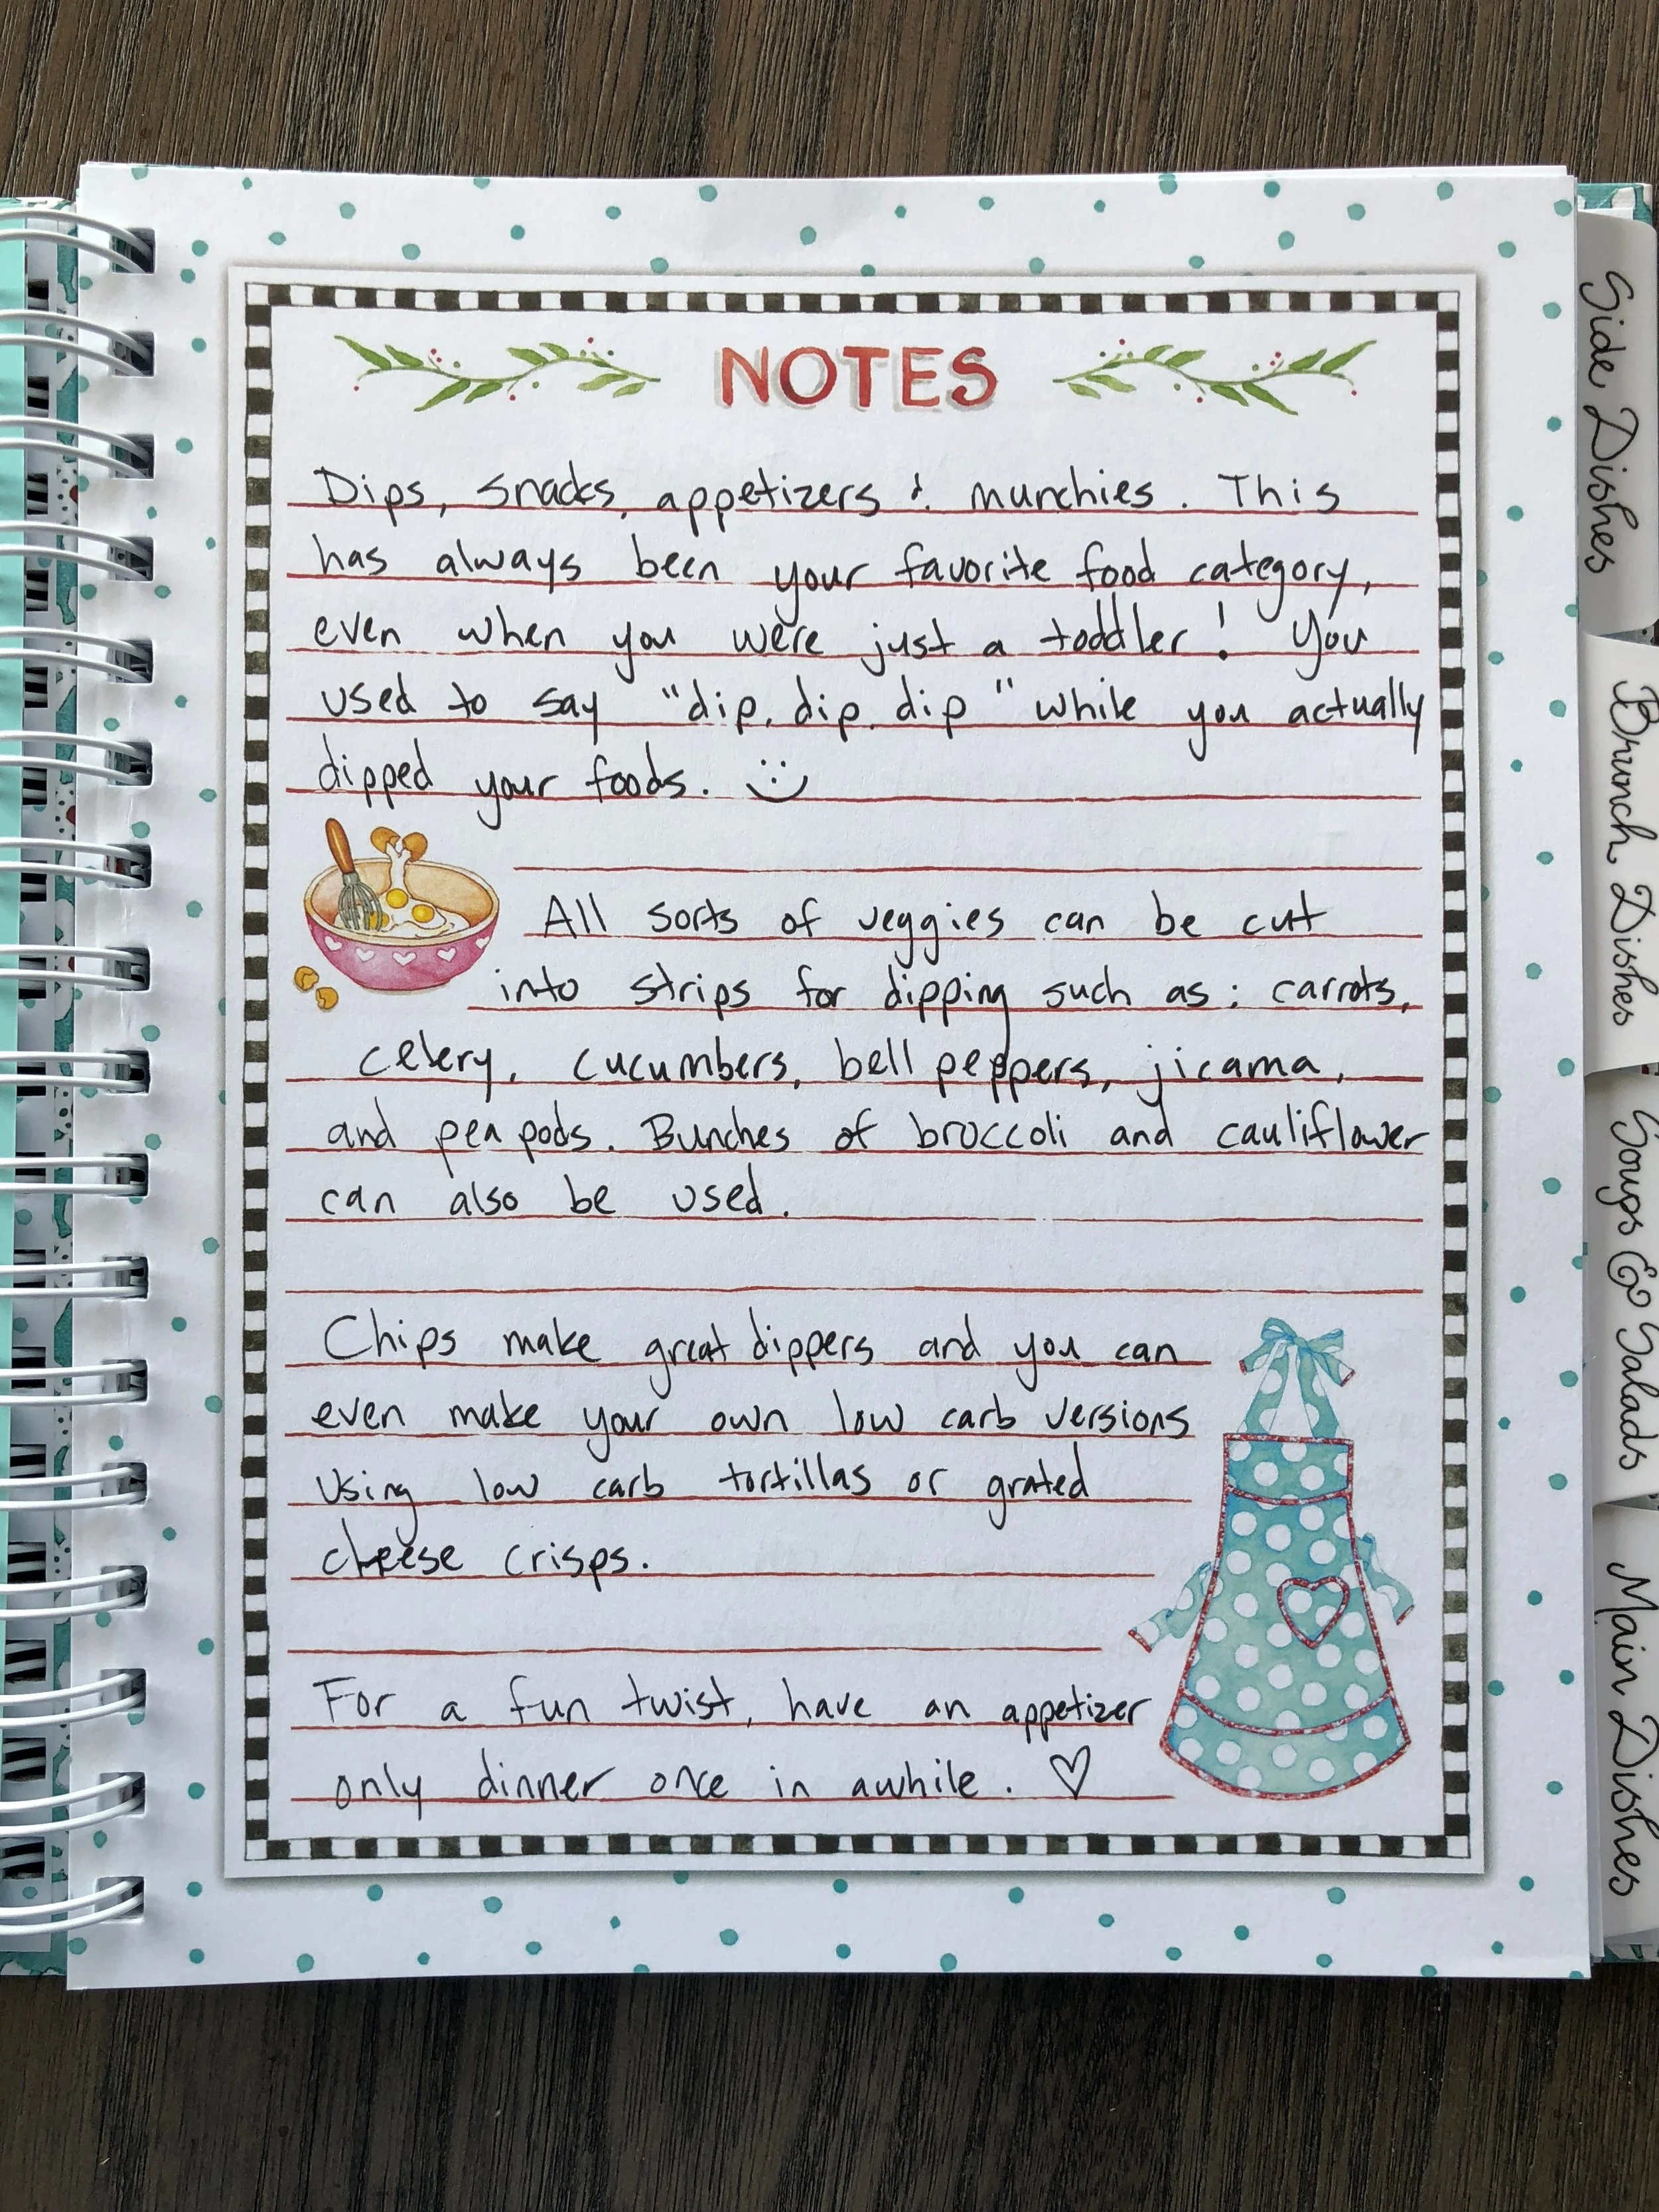 NOTES
Dips, snacks, appetizers & munchies. This
has always been your favorite food category,
even when you were just a toddler! You
used to say "dip, dip, dip" while you actually
dipped your foods. :)
All sorts of veggies can be cut
into strips for dipping such as: carrots,
celery, cucumbers, bell peppers, jicama,
and pea pods. Bunches of broccoli and cauliflower
can also be used.
Chips make great dippers and you can
even make your own low carb versions
using low carb tortillas or grated
cheese crisps.
For a fun twist, have an appetizer
only dinner once in awhile. ♡
Side Dishes
Brunch Dishes
Soups & Salads
Main Dishes